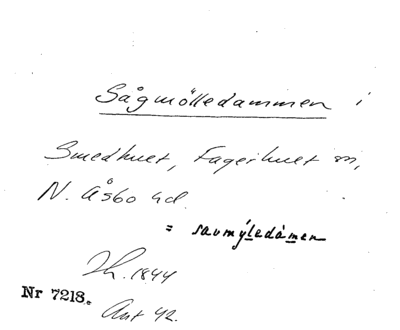 Sågmölledammen i
Smedhuet, Fagerhuet m,
N. Åsbo hd.
= savmýledámen
Th. 1844
Nr 7218.
Ant 42.